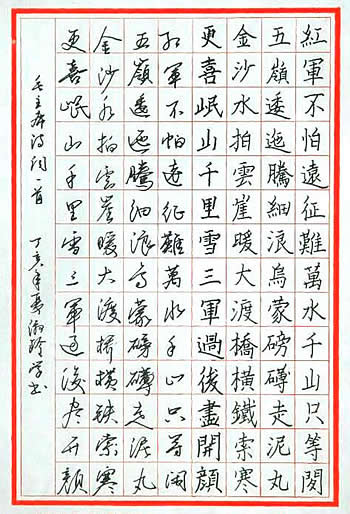 紅軍不怕遠征難萬水千山只等閑
五嶺逶迤騰細浪烏蒙磅礴走泥丸
金沙水拍雲崖暖大渡橋橫鐵索寒
更喜岷山千里雪三軍過後盡開顏
紅軍不怕遠征難萬水千山只等閑
五嶺逶迤騰細浪烏蒙磅礴走泥丸
金沙水拍雲崖暖大渡橋橫鐵索寒
更喜岷山千里雪三軍過後盡開顏
毛主席詩詞一首 丁亥年夏淑玲学书